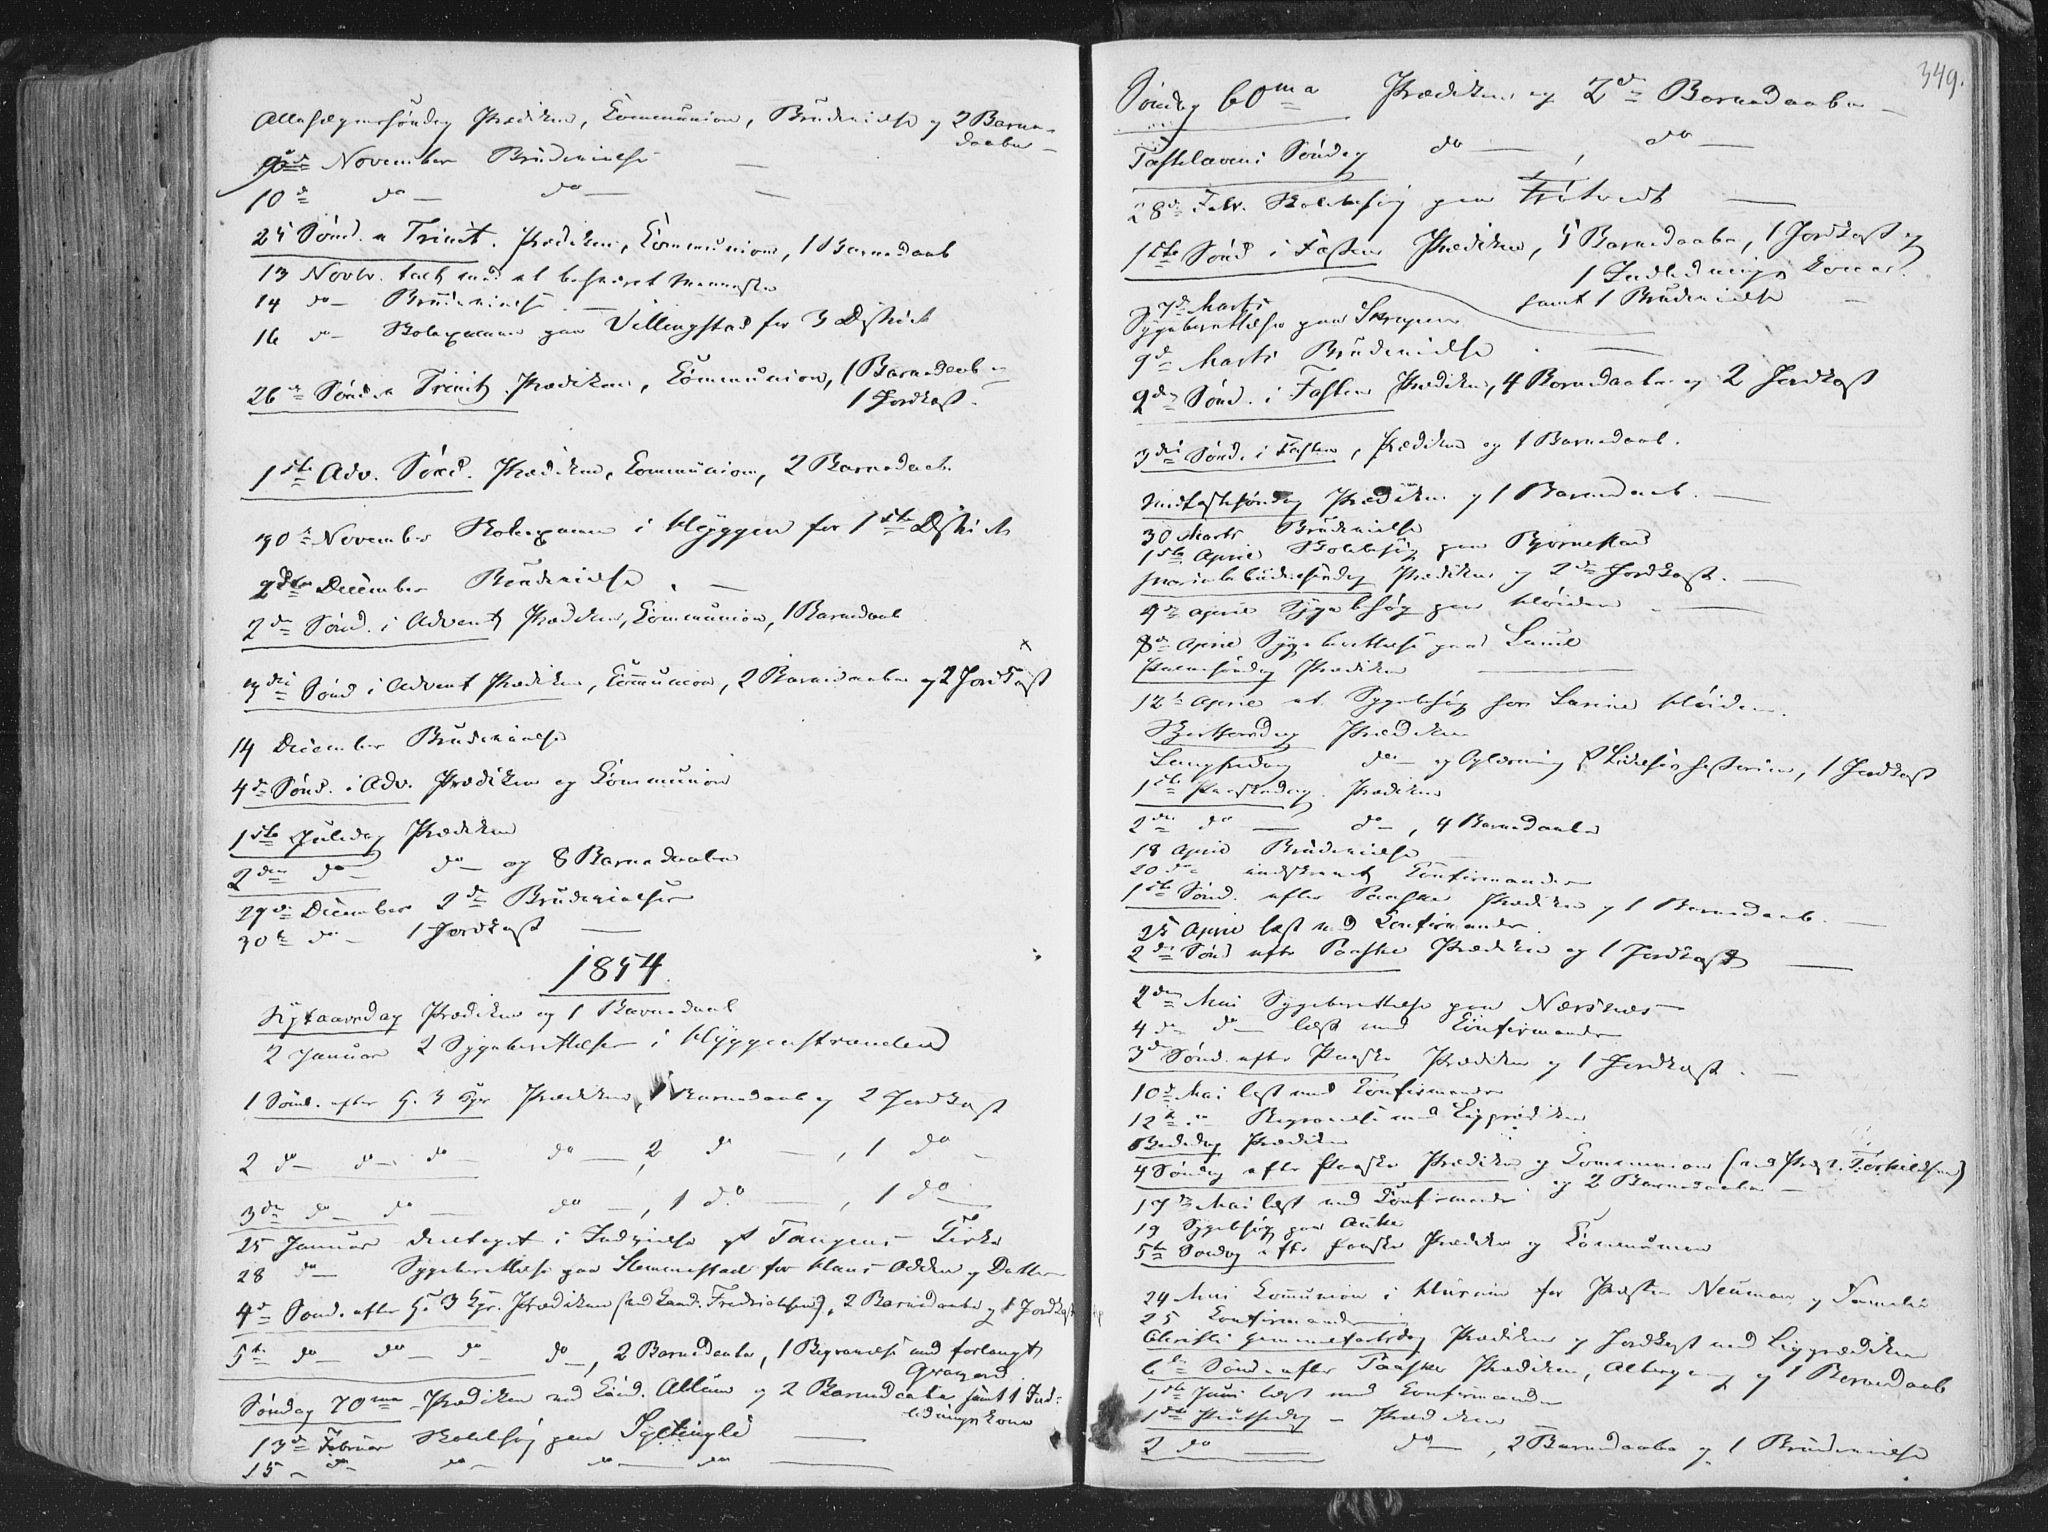 Allehelgenssöndag Prædiken, Communion, Brudevielse og 2 Barne-
daabe —
9de November Brudevielse —
10de do — do — —
25 Sönd. e Trinit. Prædiken, Communion, 1 Barnedaab
13 Novbr. et besviret Menneske
14 do — Brudevielse —
16 do — Skolexamen paa Villingstad for 3 District
26de Sönd. e Trinit. Prædiken, Communion, 1 Barnedaab og
1 Jordkast.
1ste Adv. Sönd. Prædiken, Communion, 2 Barnedaab.
30te November Skolexamen i Klöggen for 1ste District
2den December Brudevielse . —
2den Sönd. i Advent Prædiken, Communion, 1 Barnedaab
3die Sönd i Advent Prædiken, Communion, 2 Barnedaabe og 2 Jordkast
14 December Brudevielse
4de Sönd. i Adv. Prædiken og Communion
1ste Juledag Prædiken
2den do — do — og 8 Barnedaabe
29de December 2de Brudevielser
30te do — 1 Jordkast —
1854.
Nytaarsdag Prædiken og 1 Barnedaab
2 Januar 2 Sygeberettelser i Klöggenstranden
1 Sönd. efter H. 3 Kgr Prædiken, 1 Barnedaab og 2 Jordkast
2 do — do — do — do —, 2 do —, 1 do —
3de do — do — do —, 1 do —, 1 do —
25 Januar deeltaget i Indvielse af Tangens Kirke
28 do — Sygeberettelse paa Slemmestad for Klaus Odden og Datter
4de Sönd. efter H. 3 Kgr. Prædiken (ved Cand. Fredrichsen), 2 Barnedaabe og 1 Jordkast
5te do — do — do — do —, 2 Barnedaabe, 1 Begravelse med forlangt
Gravgard
Söndag 70ma Prædiken ved Cand. Allum og 2 Barnedaabe samt 1 Ind-
lednings kone
13de Februar Skolebesög paa —
15 — do — do — do — do —
349.
Söndag 60ma Prædiken og 2de Barnedaabe —
Fastelavens Söndag do —, do —
28de Febr. Skolebesög paa Hötvedt —
1ste Sönd i Fasten Prædiken, 5 Barnedaabe, 1 Jordkast og
1 Indledning Koner.
samt 1 Brudevielse —
7de Marts
Sygeberettelse paa
9de Marts Brudevielse . —
2den Sönd. i Fasten Prædiken, 4 Barnedaabe og 2 Jordkast
3die Sönd. i Fasten, Prædiken og 1 Barnedaab.
Midfastesöndag Prædiken og 1 Barnedaab. —
30 Marts Brudevielse
1ste April Skolebesög paa Björnestad
Mariæbebudelsesöndag Prædiken og 2de Jordkast. —
4de April Sygebesög paa Klöiden . —
8de April Sygeberettelse paa
Palmesöndag Prædiken —
12te April et Sygebesög hos Larine Klöiden.
Skjærtorsdag Prædiken
Langfredag do — og Oplæsning af Lidelseshistorien, 1 Jordkast
1ste Paaskedag. Prædiken
2den do — do —, 4 Barnedaabe
18 April Brudevielse —
20 do — indskrevet Confirmander
1ste Sönd. efter Paaske Prædiken og 1 Barnedaab —
25 April læst med Confirmander.
2den Sönd efter Paaske Prædiken og 1 Jordkast —
2den Mai Sygeberettelse paa Nærsnæs —
4de do — læst med Confirmander
3die Sönd. efter Paaske Prædiken og 1 Jordkast . —
10de Mai læst med Confirmander
12te — Begravelse med Ligprædiken
Bededag Prædiken
4 Söndag efter Paaske Prædiken og Communion (ved Præst Torkildsen)
og 2 Barnedaabe —
17de Mai læst med Confirmander
19 Sygebesög paa
5te Söndag efter Paaske Prædiken og Communion
24 Mai Communion i Huset for Præsten Neuman og Familie
25 Confirmander —
Christi Himmelfartsdag Prædiken og Jordkast med Ligprædiken
6te Sönd. efter Paaske Prædiken, Altergang og 1 Barnedaab
1ste Juni læst med Confirmander
1ste Pintsedag — Prædiken —
2 do — do —, 2 Barnedaabe og 1 Brudevielse